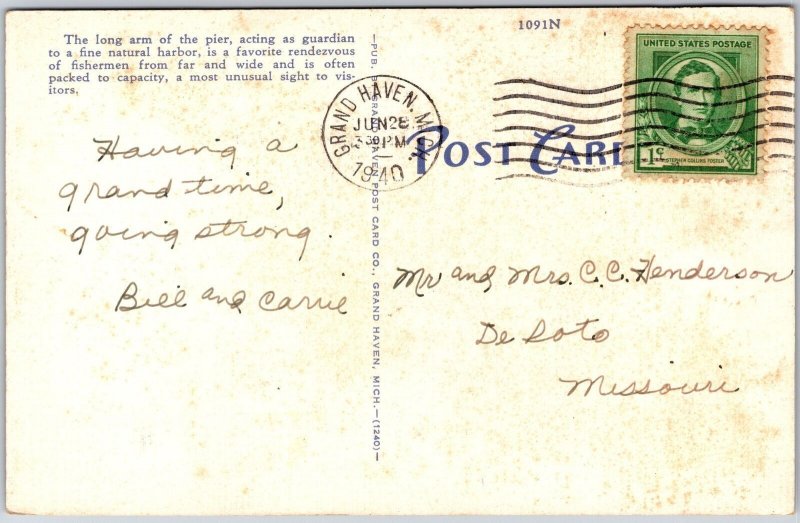 The long arm of the pier, acting as guardian
to a fine natural harbor, is a favorite rendezvous
of fishermen from far and wide and is often
packed to capacity, a most unusual sight to vis-
itors.
Having a
grand time,
going strong.
Bill and Carrie
—PUB. BY GRAND HAVEN POST CARD CO., GRAND HAVEN, MICH.—(1240)—
1091N
POST CARD
GRAND HAVEN, MICH.
JUN 28
PM
1940
UNITED STATES POSTAGE
1¢
STEPHEN COLLINS FOSTER
Mr and Mrs. C. C. Henderson
De Soto
Missouri